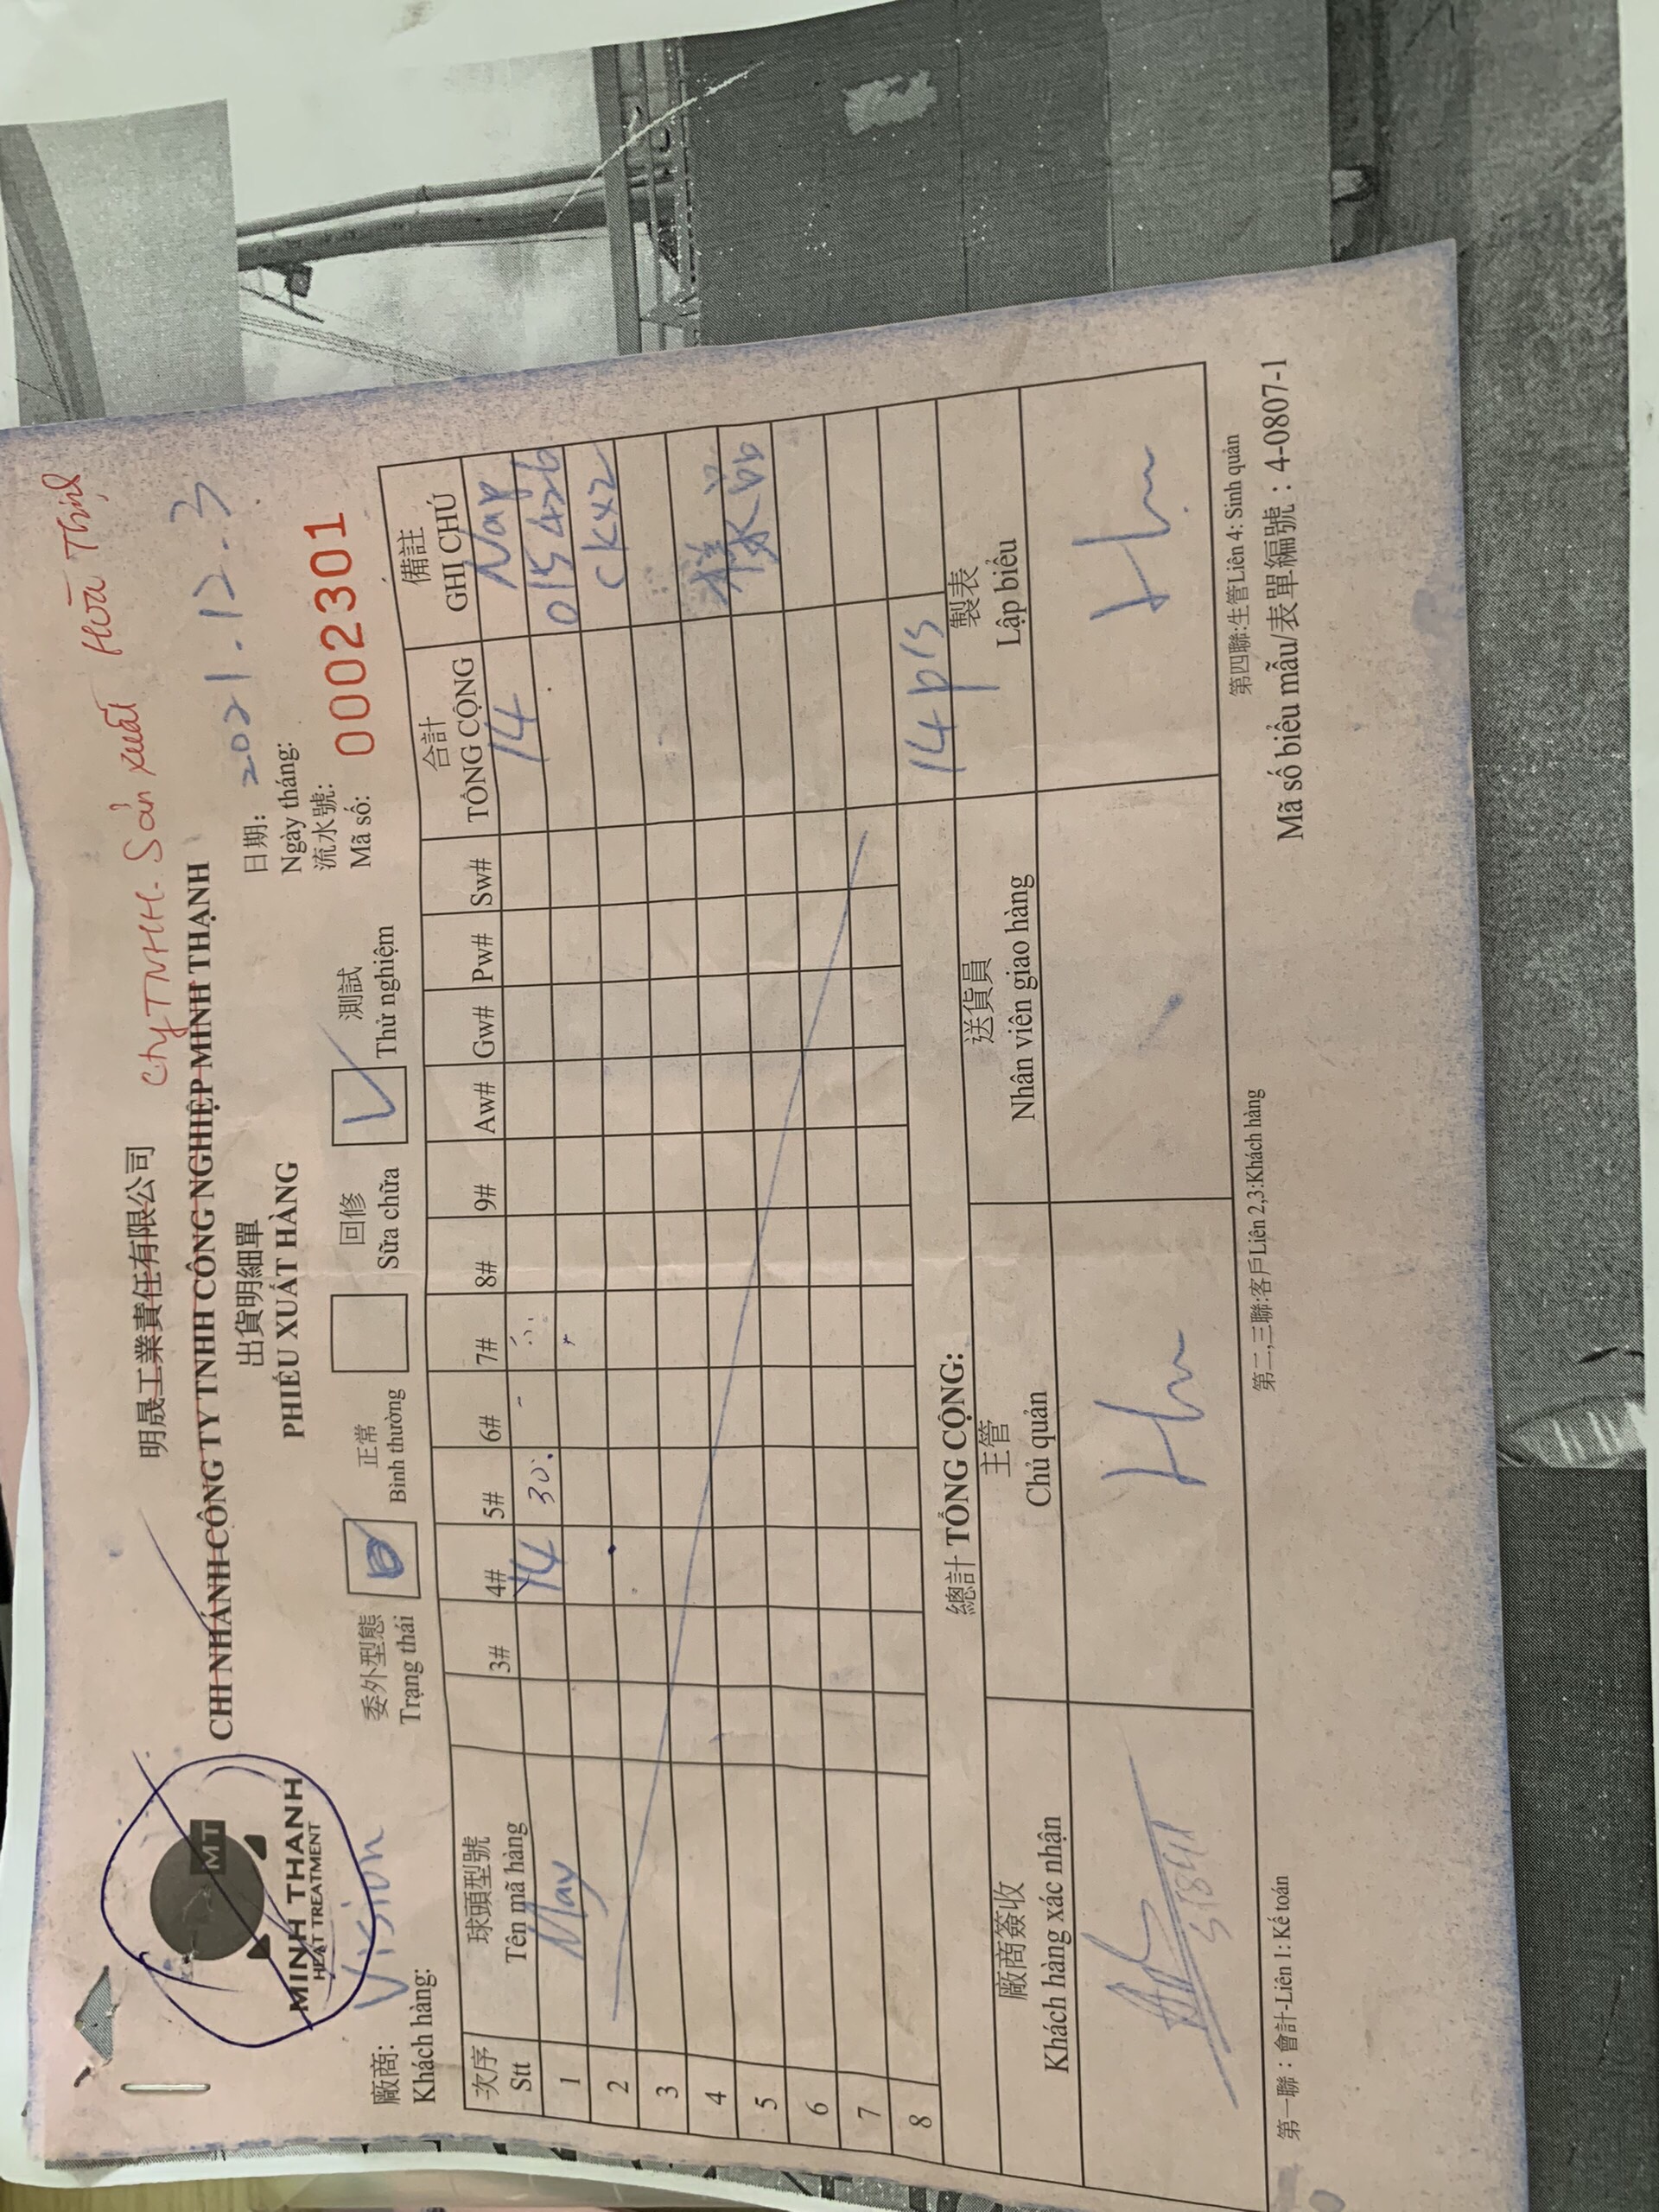 MT
MINH THANH
HEAT TREATMENT
明晟工業責任有限公司
Cty TNHH. Sản xuất Hòa Thịnh
CHI NHÁNH CÔNG TY TNHH CÔNG NGHIỆP MINH THẠNH
出貨明細單
PHIẾU XUẤT HÀNG
日期: 2021.12.3
Ngày tháng:
流水號:
Mã số: 0002301
廠商: Vision
Khách hàng:
委外型態 正常 回修 測試
Trạng thái Bình thường Sữa chữa Thử nghiệm
次序 球頭型號 合計 備註
Stt Tên mã hàng 3# 4# 5# 6# 7# 8# 9# Aw# Gw# Pw# Sw# TỔNG CỘNG GHI CHÚ
1 May 14 30. 14 Nap
015426
2 ckx2
3
4
5 樣品
6
7
8
總計 TỔNG CỘNG: 14 pcs
廠商簽收 主管 送貨員 製表
Khách hàng xác nhận Chủ quản Nhân viên giao hàng Lập biểu
第一聯：會計-Liên 1: Kế toán
第二,三聯:客戶Liên 2,3:Khách hàng
第四聯:生管Liên 4: Sinh quản
Mã số biểu mẫu/表單編號：4-0807-1